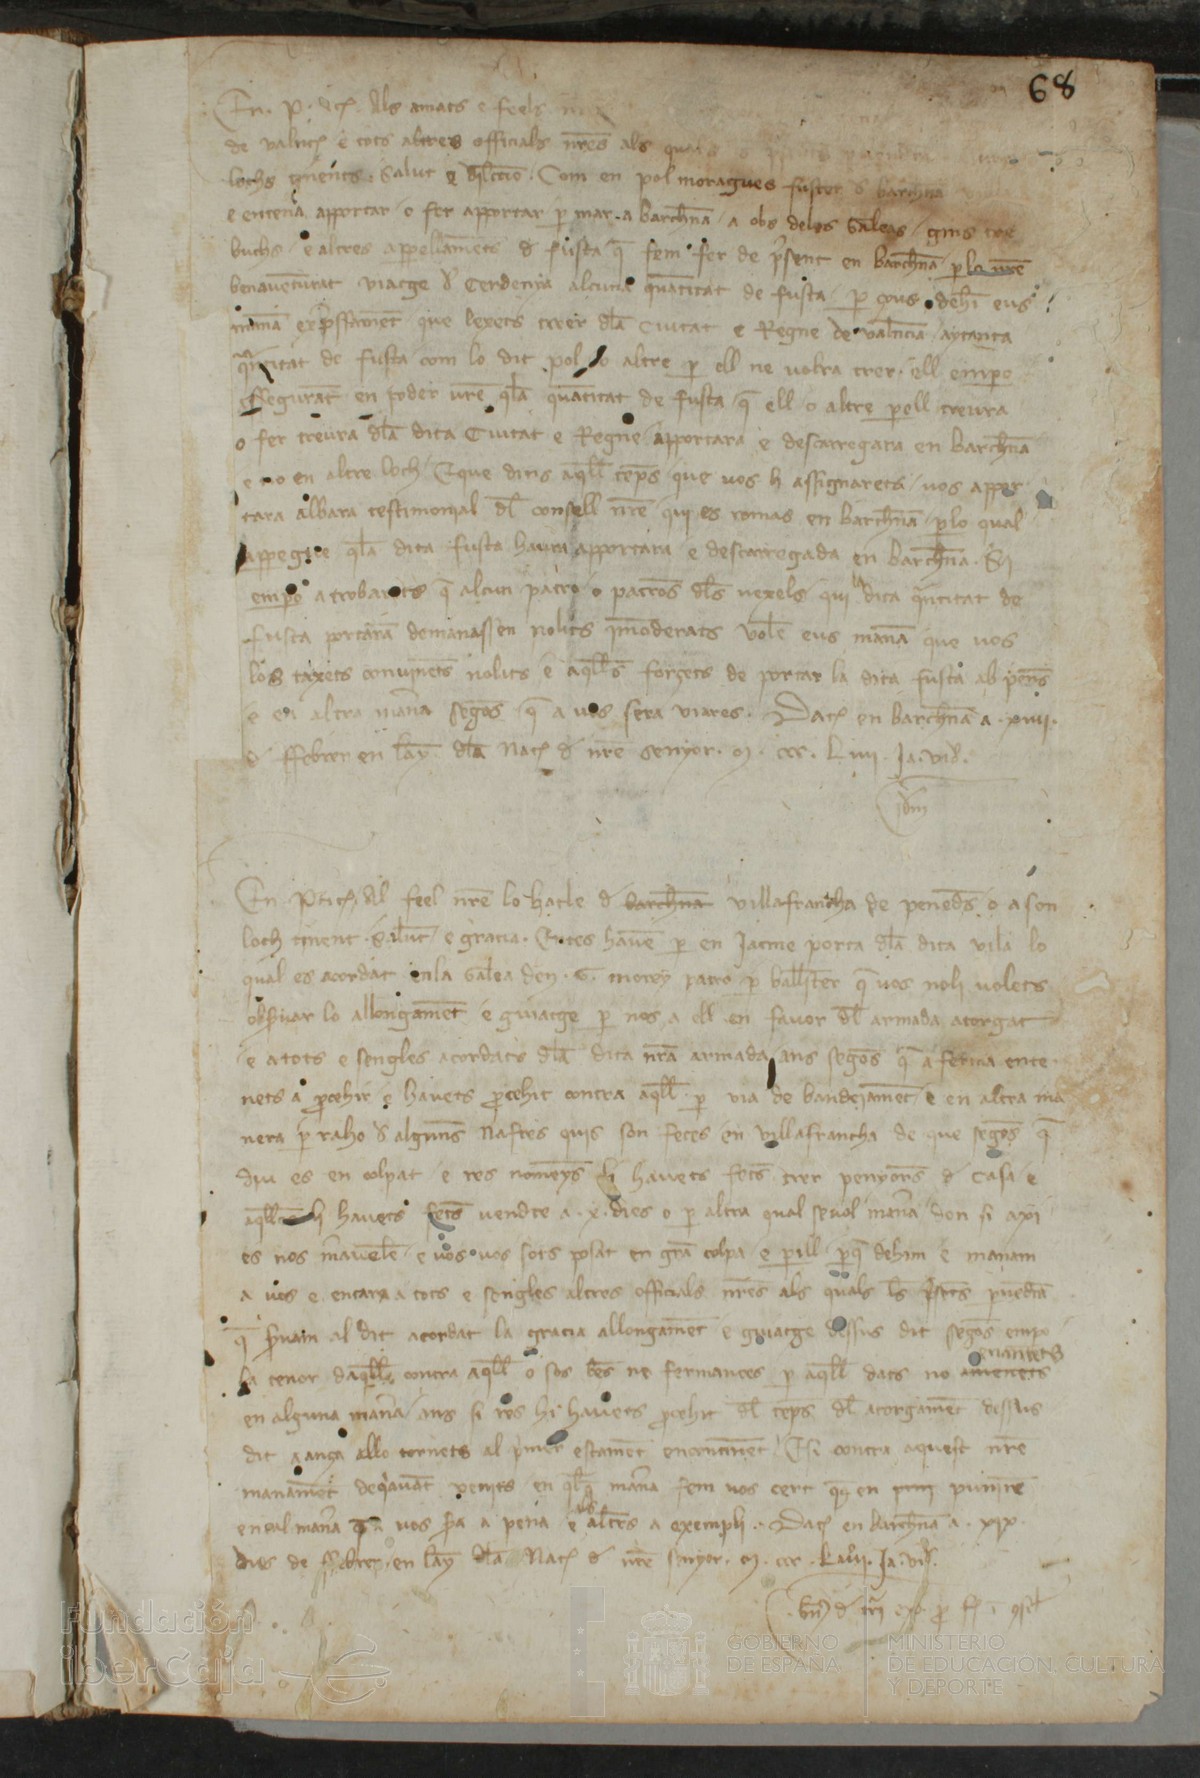 68
En P. etc. Als amats e feels
de Valnc̃ e tots altres officials nr̃es als quals
lochs tinents. Salut e dil̃ccio. Com en pol moragues fuster d barchna
e entena apportar o fer apportar p mar a barchña a obs deles Galeas
buchs e altres appellamẽts d fusta q̃ fem fer de p̃sent en barchña p lo nr̃e
benauẽturat viatge d Cerdenya alcuna quãtitat de fusta p çous dehĩ eus
manã exp̃ssamẽt que lexets trer dla Ciutat e Regne de valẽncia aytanta
quãtitat de fusta com lo dit pol o altre p ell ne volra trer. ell emp̃o
assegurãt en poder vr̃e q̃la quãtitat de fusta q̃ ell o altre p ell treura
o fer treura dla dita Ciutat e Regne apportara e descarregara en barchña
e no en altre loch. E que dins aq̃ll temps que vos li assignarets vos appor
tara albara testimonial dl̃ consell nr̃e qui es romas en barchña p lo qual
appegue q̃la dita fusta haura apportada e descarregada en barchña. Si
emp̃o atrobarets q̃ alcun patro o patrõs dl̃s vexels qui la dita quãtitat de
fusta portarã demanassen nolits inmoderats volẽ eus manã que vos
los taxets couinẽts nolits e aq̃lls forçets de portar la dita fusta ab penẽs
e en altra maña segõs q̃ a vos sera viares. Dat̃ en barchña a . xiiii.
d Ffebrer en lãy dla Nat̃ d nr̃e senyor . M . ccc . L iiii . Ja. vid̃.
Idm
En P etc̃. Al feel nr̃e lo batle d barchña villafrancha de penedẽs o a son
loch tinent. Salut e gracia. Entes hauẽ p en Jacme porta dla dita vila lo
qual es acordat en la Galea den . G. morey patro p ballester q̃ vos noli volets
obseruar lo allongamẽt e guiatge p nos a ell en fauor dl̃ armada atorgat
e a tots e sengles acordats dla dita nr̃a armada ans segõs q̃ aferma ente
nets a p̃cehir e hauets p̃cehit contra aq̃ll p via de bandejamẽt e en altra ma
nera p raho d alguns Naffres quis son fetes en villafrancha de que segõs q̃
diu es en colpat e res nomeyns li hauets fets trer penyors d casa e
aq̃lls li hauets fets vendre a . x. dies o p altra qual seuol mañera don si axi
es nos m̃auellẽ e vos vos sots posat en grã colpa e perill. p q̃ dehim e manam
a vos e encara a tots e sengles altres officials nr̃es als quals les p̃sẽts p̃uẽdrã
q̃ s̃uam al dit acordat la gracia allongamẽt e guiatge dessus dit segõs emp̃o
la tenor daq̃lls contra aq̃ll o sos bẽs ne fermances p aq̃ll dats no
en alguna mañera ans si res hi hauets p̃cehit dl̃ temps dl̃ atorgamẽt dessus
dit a ença allo tornets al p̃mer estamẽt encontinẽt. E si contra aquest nr̃e
manamẽt deq̃auãt venits en q̃lq̃ mañera fem vos cert q̃ us en punirẽ
en tal mañera q̃ a vos s̃a a pena e als altres a exempli. Dat̃ en barchña a . xix.
dies de Ffebrer en lãy dla Nat̃ d nr̃e senyor . M . ccc . L iiii . Ja. vid̃.
Fundación
iberCaja
GOBIERNO
DE ESPAÑA
MINISTERIO
DE EDUCACIÓN, CULTURA
Y DEPORTE